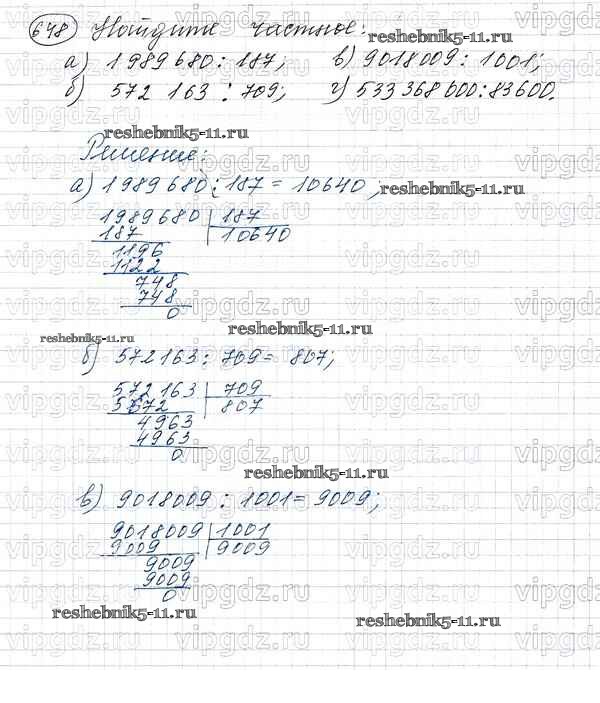 648 Найдите частное:
а) 1989680 : 187; в) 9018009 : 1001;
б) 572 163 : 709; г) 533 368 600 : 83600.
reshebnik5-11.ru
reshebnik5-11.ru
Решение:
а) 1989680 : 187 = 10640;
reshebnik5-11.ru
1989680 | 187
187 10640
1196
1122
748
748
0
reshebnik5-11.ru
reshebnik5-11.ru
б) 572163 : 709 = 807;
572 163 | 709
5672 807
4963
4963
0
reshebnik5-11.ru
в) 9018009 : 1001 = 9009;
9018009 | 1001
9009 9009
9009
9009
0
reshebnik5-11.ru
reshebnik5-11.ru
vipgdz.ru